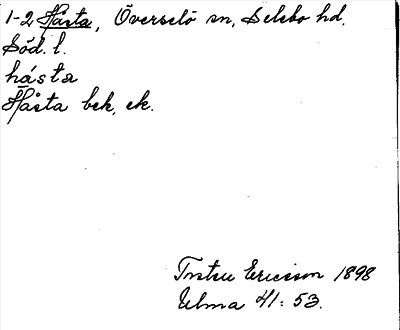 1-2 Håsta, Överselö sn, Selebo hd.
Söd. l.
hásta
Håsta bek. ek.
Ericsson 1898
Ulma 41:53.